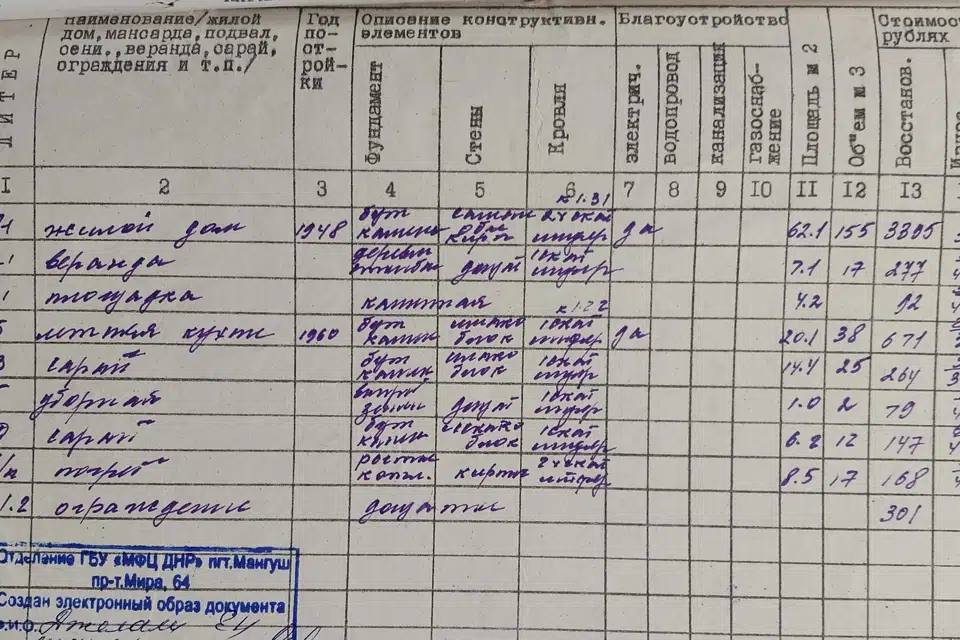 наименование/жилой
дом, мансарда, подвал,
сени., веранда, сарай,
ограждения и т.п./
Год
по-
от-
рой-
ки
Описание конструктивн.
элементов
Благоустройство
Стоимос
рублях
ЛИТЕР
Фундамент
Стены
Кровля
электрич.
водопровод
канализация
газоснаб-
жение
Площадь м 2
Об"ем м 3
Восстанов.
Износ
I 2 3 4 5 6 7 8 9 IO II I2 I3
к 1.31
жилой дом 1948 бут камень 2х скат шифер да 62.1 155 3395
веранда дощат 1скат шифер 7.1 17 277
площадка 4.2 92
к 1.22
летняя кухня 1960 бут камень шлако блок 1скат шифер да 20.1 38 671
сарай бут камень шлако блок 1скат шифер 14.4 25 264
уборная дощат 1скат шифер 1.0 2 79
сарай бут камен шлако блок 1скат шифер 6.2 12 147
погреб кирпич 2хскат шифер 8.5 17 168
1.2 ограждение 301
Отделение ГБУ «МФЦ ДНР» пгт.Мангуш
пр-т.Мира, 64
Создан электронный образ документа
Ф.И.О.